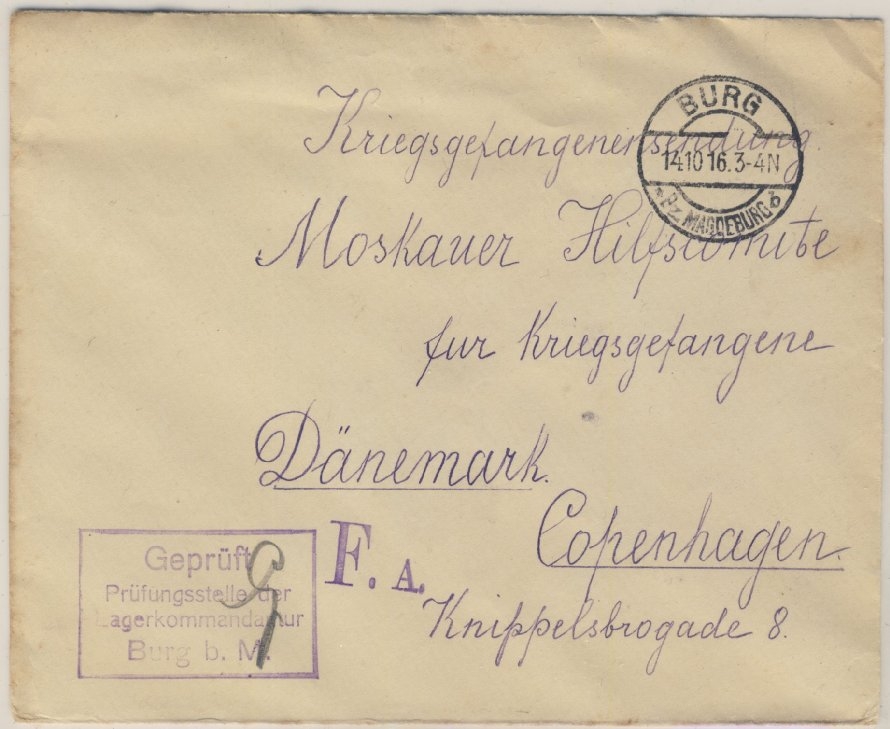 Kriegsgefangenensendung.
BURG
14.10 16.3-4N
* Bz. MAGDEBURG b
Moskauer Hilfscomite
fur Kriegsgefangene
Dänemark.
Copenhagen.
Knippelsbrogade 8.
F. A.
Geprüft
Prüfungsstelle der
Lagerkommandantur
Burg b. M.